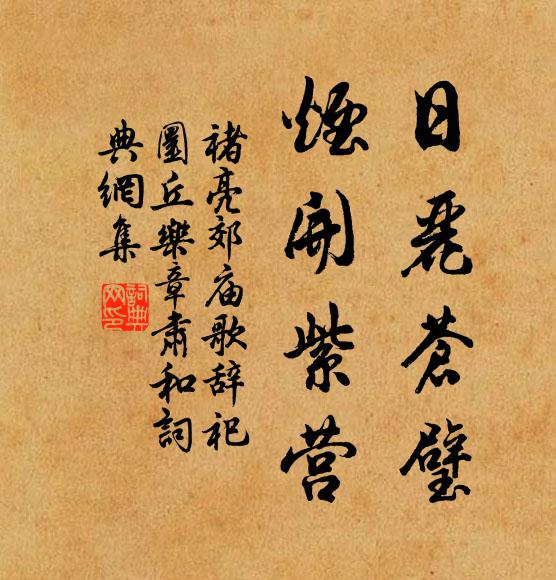 日麗蒼璧
煙開紫营
褚亮郊庙歌辞祀
圜丘樂章肅和詞
典網集
詞典
网印